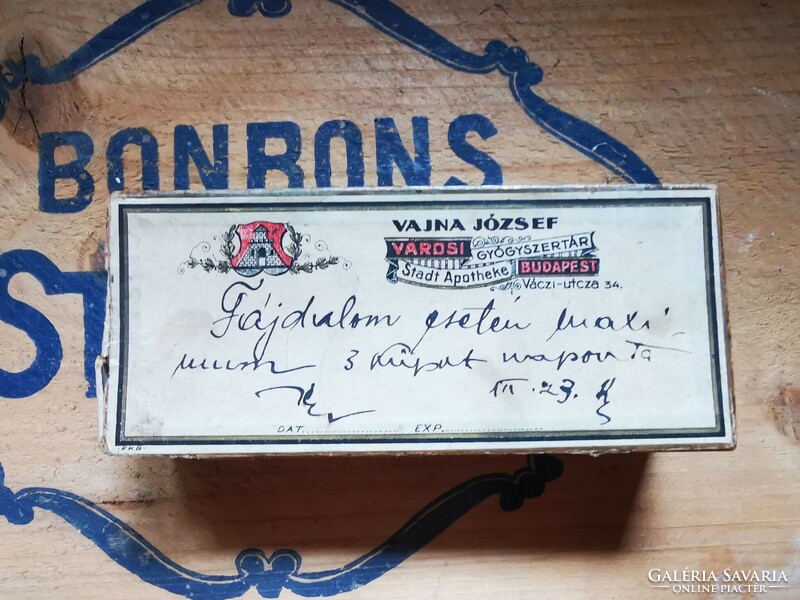 BONBONS
ST
VAJNA JÓZSEF
VÁROSI GYÓGYSZERTÁR
Stadt Apotheke BUDAPEST
Váczi-utcza 34.
Fájdalom esetén maxi
mum 3 kúpot naponta
III. 23.
DAT. EXP.
GALÉRIA SAVARIA
ONLINE PIACTÉR